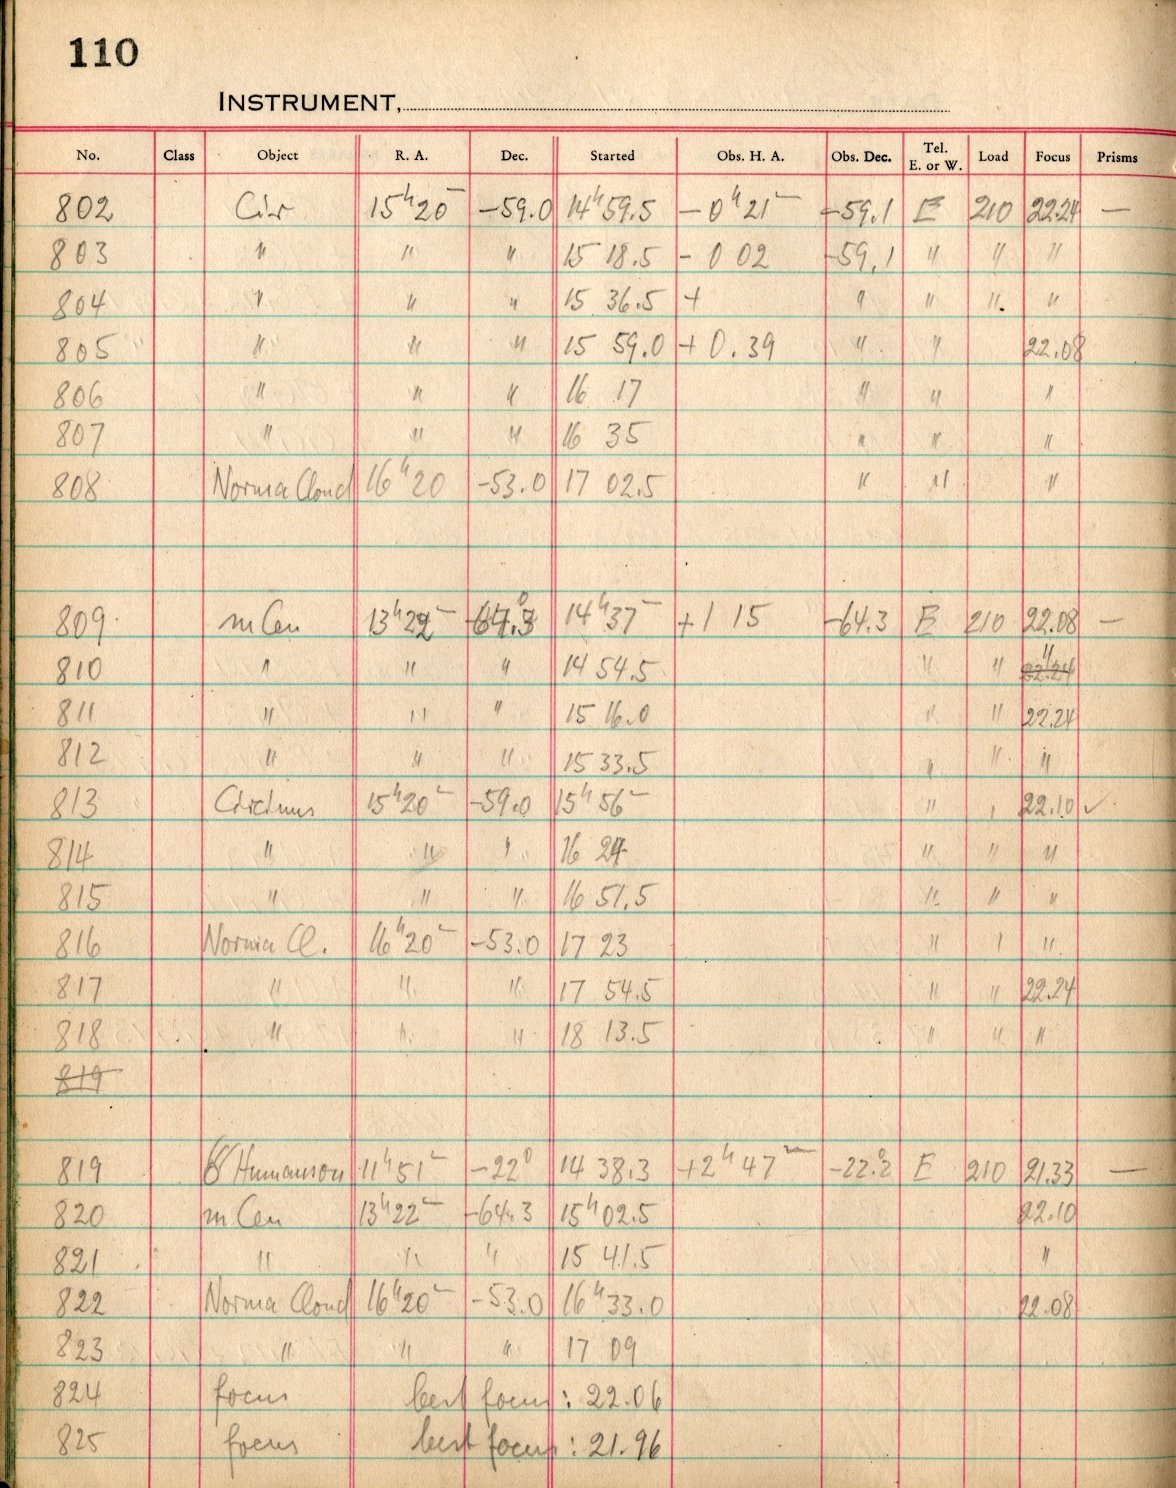 110
INSTRUMENT,
No. Class Object R. A. Dec. Started Obs. H. A. Obs. Dec. Tel. E. or W. Load Focus Prisms
802 Cir 15h20m -59.0 14h59.5 -0h21m -59.1 E 210 22.24 —
803 " " " 15 18.5 - 0 02 -59.1 " " "
804 " " " 15 36.5 + " " " "
805 " " " 15 59.0 + 0.39 " " 22.08
806 " " " 16 17 " " "
807 " " " 16 35 " " "
808 Norma Cloud 16h20 -53.0 17 02.5 " " "
809 m Cen 13h22m -64.3 14h37m +1 15 -64.3 E 210 22.08 —
810 " " " 14 54.5 " " 22.24 "
811 " " " 15 16.0 " " 22.24
812 " " " 15 33.5 " " "
813 Circinus 15h20m -59.0 15h56m " " 22.10 ✓
814 " " " 16 24 " " "
815 " " " 16 51.5 " " "
816 Norma Cl. 16h20m -53.0 17 23 " " "
817 " " " 17 54.5 " " 22.24
818 " " " 18 13.5 " " "
819
819 Humanson 11h51m -22° 14 38.3 +2h47m -22.2 E 210 21.33 —
820 m Cen 13h22m -64.3 15h02.5 22.10
821 " " " 15 41.5 "
822 Norma Cloud 16h20m -53.0 16h33.0 22.08
823 " " " 17 09
824 focus best focus : 22.06
825 focus best focus : 21.96